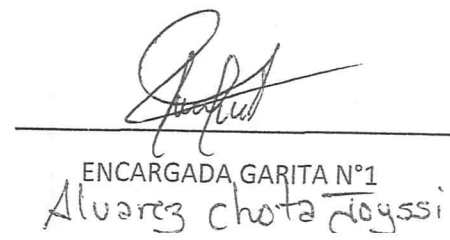 ENCARGADA GARITA N°1
Alvarez chota Joyssi